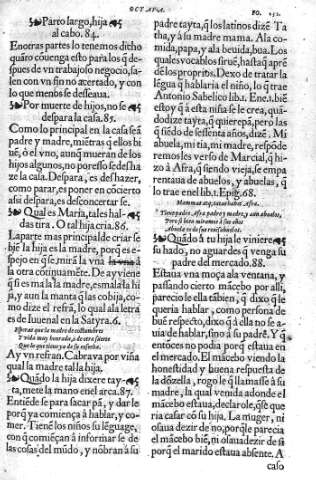 OCTAVA.
FO. 252.
Parto largo, hija
al cabo. 84.
En otras partes lo tenemos dicho
quāto cōuenga esto para los q̄ de-
spues de vn trabajoso negocio, sa-
len con vn fin no acertado, y con
lo que menos se desseaua.
Por muerte de hijos, no se
despara la casa. 85.
Como lo principal en la casa seā
padre y madre, miētras q̄ ellos bi-
uē, o el vno, aunq̄ mueran de los
hijos algunos, no por esso se desha
ze la casa. Despara, es deshazer,
como parar, es poner en cōcierto
assi desparar, es desconcertar se.
Qual es Maria, tales hal-
das tira. O tal hija cria. 86.
La parte mas principal de criar se
biē la hija es la madre, porq̄ es e-
spejo en q̄ se, mirā la vna
la otra cōtinuamēte. De ay viene
q̄ si es mala la madre, es mala la hi
ja, y aun la manta q̄ las cobija, co-
mo dize el refrā, lo qual a la letra
es de Iuuenal en la Satyra. 6.
Ay vn refran. Cabra va por viña
qual la madre tal la hija.
Quādo la hija dixere tay-
ta, mete la mano en el arca. 87.
Entiēde se para sacar pā, y dar le
por q̄ ya comiença à hablar, y co-
mer. Tienē los niños su lēguage,
con q̄ comiēçan à informar se de
las cosas del mūdo, y nōbran a su
padre tayta, q̄ los latinos dizē Ta
tha, y à su madre mama. A la co-
mida, papa, y a la beuida, bua. Los
quales vocablos siruē, hasta q̄ aprē
dē los proprios. Dexo de tratar la
lēgua q̄ hablaria el niño, lo q̄ trae
Antonio Sabelico lib. 1. Ene. 1. biē
estoy q̄ à esta niña se le crea, quā-
do dize tayta, q̄ quiere pā, pero las
q̄ siēdo de sessenta años, dizē. Mi
abuela, mi tia, mi madre, respōde
remos les verso de Marcial, q̄ hi-
zo à Afra, q̄ siendo vieja, se emp a
rentaua de abuelos, y abuelas, q̄
lo trae en el lib. 1. Epig. 68.
Mammas atq, tatas habet Afra.
Tiene padres Afra y madre, y aun abuelos,
Quādo à tu hija le viniere
su hado, no aguardes q̄ venga su
padre del mercado. 88.
Estaua vna moça a la ventana, y
passando cierto mācebo por alli,
parecio le ella tābien, q̄ dixo q̄ le
queria hablar, como persona de
buē respecto, dixo q̄ à ella no se a-
uia de hablar, sino à su padre. Y q̄
entōces no podia porq̄ estaua en
el mercado. El mācebo viendo la
honestidad y buena respuesta de
la dōzella, rogo le q̄ llamasse à su
madre, la qual venida adonde el
mācebo estaua, declarole, q̄ se que
ria casar cō su hija. La muger, ni
osaua dezir de no, porq̄ le parecia
el mācebo biē, ni osaua dezir de si
porq̄ el marido estaua absente. A
caso